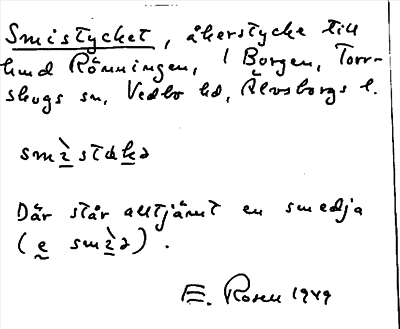 Smistycket, åkerstycke till
lund Rönningen, 1 Borgen, Torr-
skogs sn, Vedbo hd, Älvsborgs l.
Där står alltjämt en smedja
E. Rosen 1949